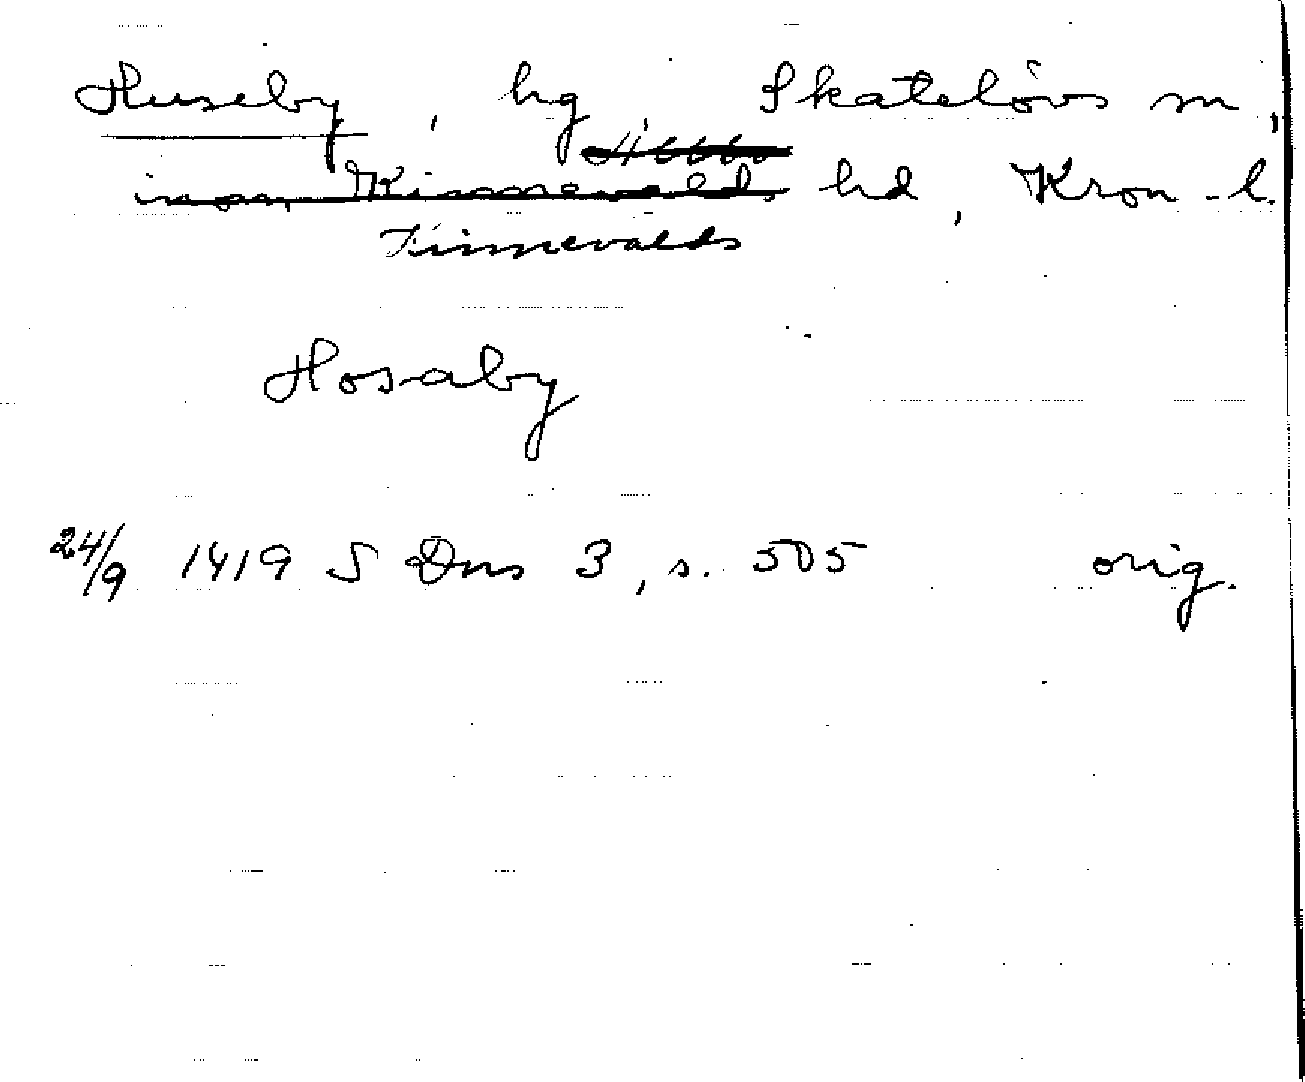 Huseby, hg, Skatelövs sn,
Kinnevald hd, Kron-l.
Kinnevalds
Hosaby
24/9 1419 S Dns 3, s. 505 orig.